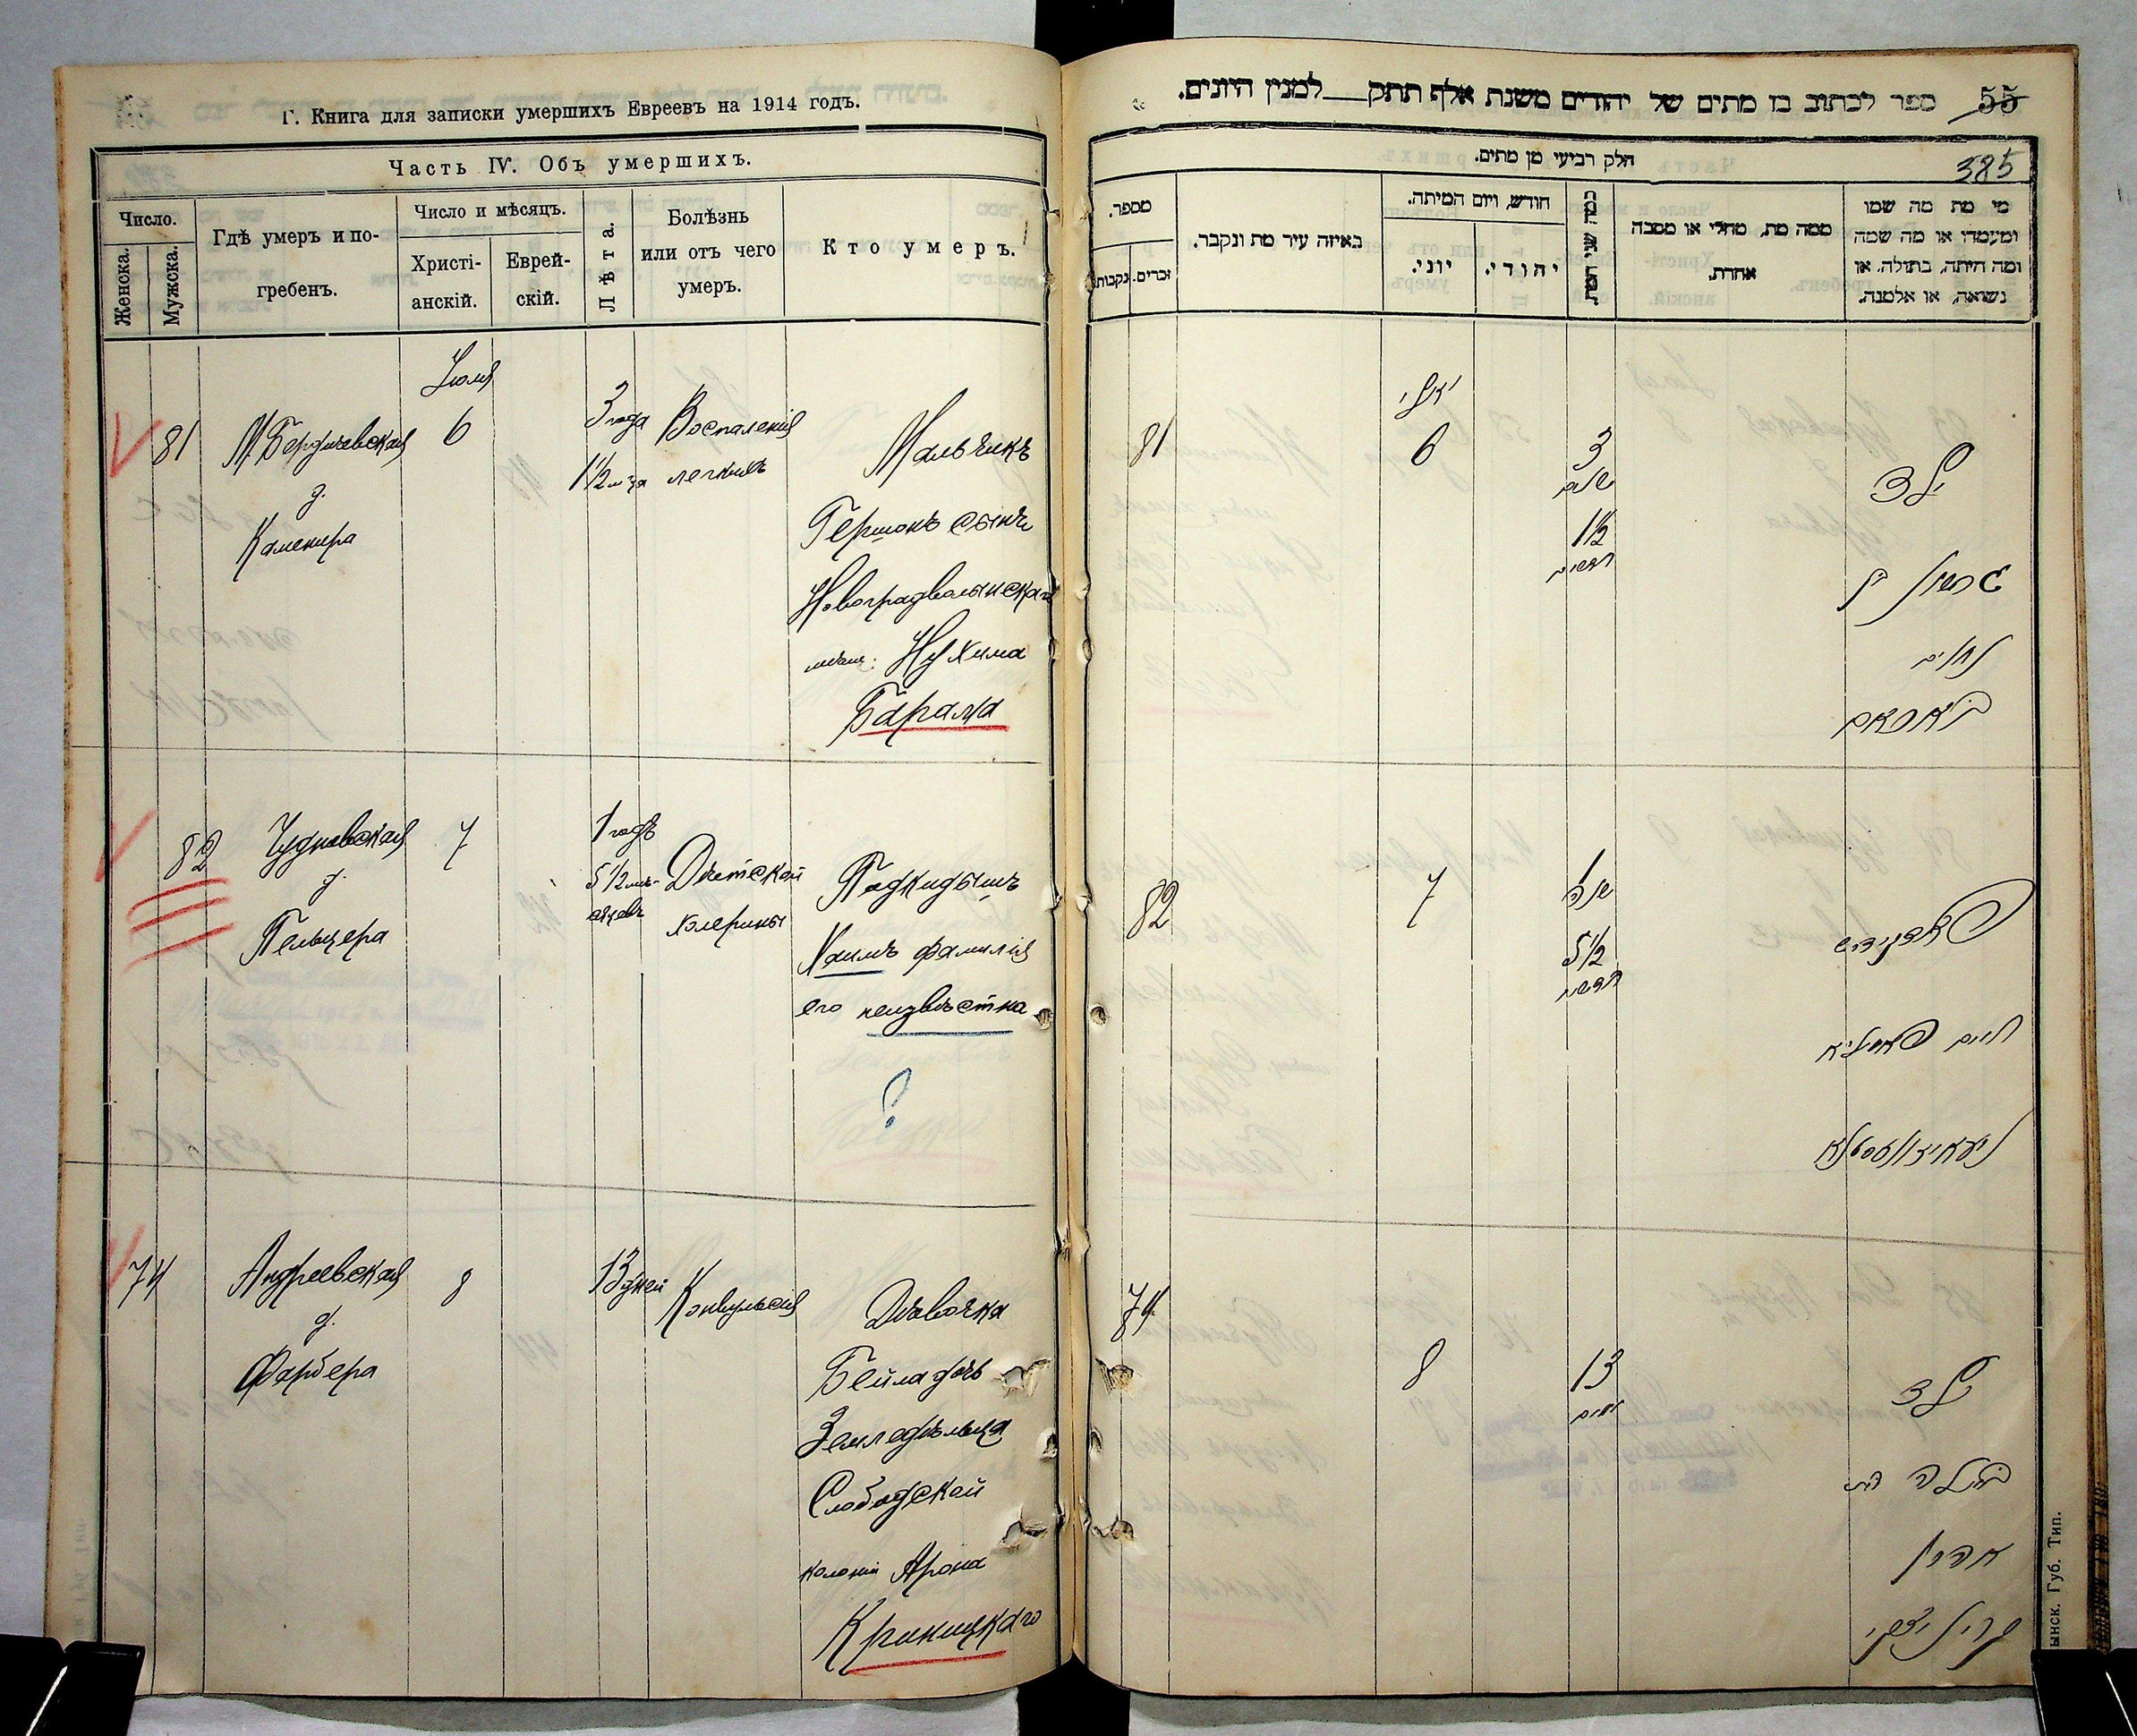 Г. Книга для записки умершихъ Евреевъ на 1914 годъ.
Часть IV. Объ умершихъ.
Число.
Женска.
Мужска.
Гдѣ умеръ и по-
гребенъ.
Число и мѣсяцъ.
Христі-
анскій.
Еврей-
скій.
Лѣта.
Болѣзнь
или отъ чего
умеръ.
Кто умеръ.
Іюля
81
М. Бердичевская
д.
Каменира
6
3 года
1½ м-ца
Воспаленія
легкихъ
Мальчикъ
Гершонъ сынъ
Новоградволынскаго
мѣщ. Нухима
Барама
82
Чудновская
д.
Пельцера
7
1 годъ
5½ мѣ-
сяцевъ
Дѣтской
холерины
Подкидышъ
Хаимъ фамилія
его неизвѣстна
?
74
Андреевская
д.
Фарбера
8
13 дней
Конвульсія
Дѣвочка
Бейла дочь
Земледѣльца
Слободской
колоніи Арона
Криницкаго
55
ספר לכתוב בו מתים של יהודים משנת אלף תתק__למנין היונים.
385
חלק רביעי מן מתים.
מספר.
נקבות.
זכרים.
באיזה עיר מת ונקבר.
חודש, ויום המיתה.
יוני.
יהודי.
כמה שני המת.
ממה מת, מחלי או מסבה
אחרת.
מי מת מה שמו
ומעמדו או מה שמה
ומה היתה, בתולה, או
נשואה, או אלמנה.
יולי
81
6
3
שנים
1½
חדשים
ילד
גרשון בן
נחום
באראם
82
7
1
שנה
5½
חדשים
פאדקידיש
חיים פאמיליא
ניעאיזוועסטנא
74
8
13
ימים
ילד
ביילה בת
אהרן
קריניצקי
ынск. Губ. Тип.